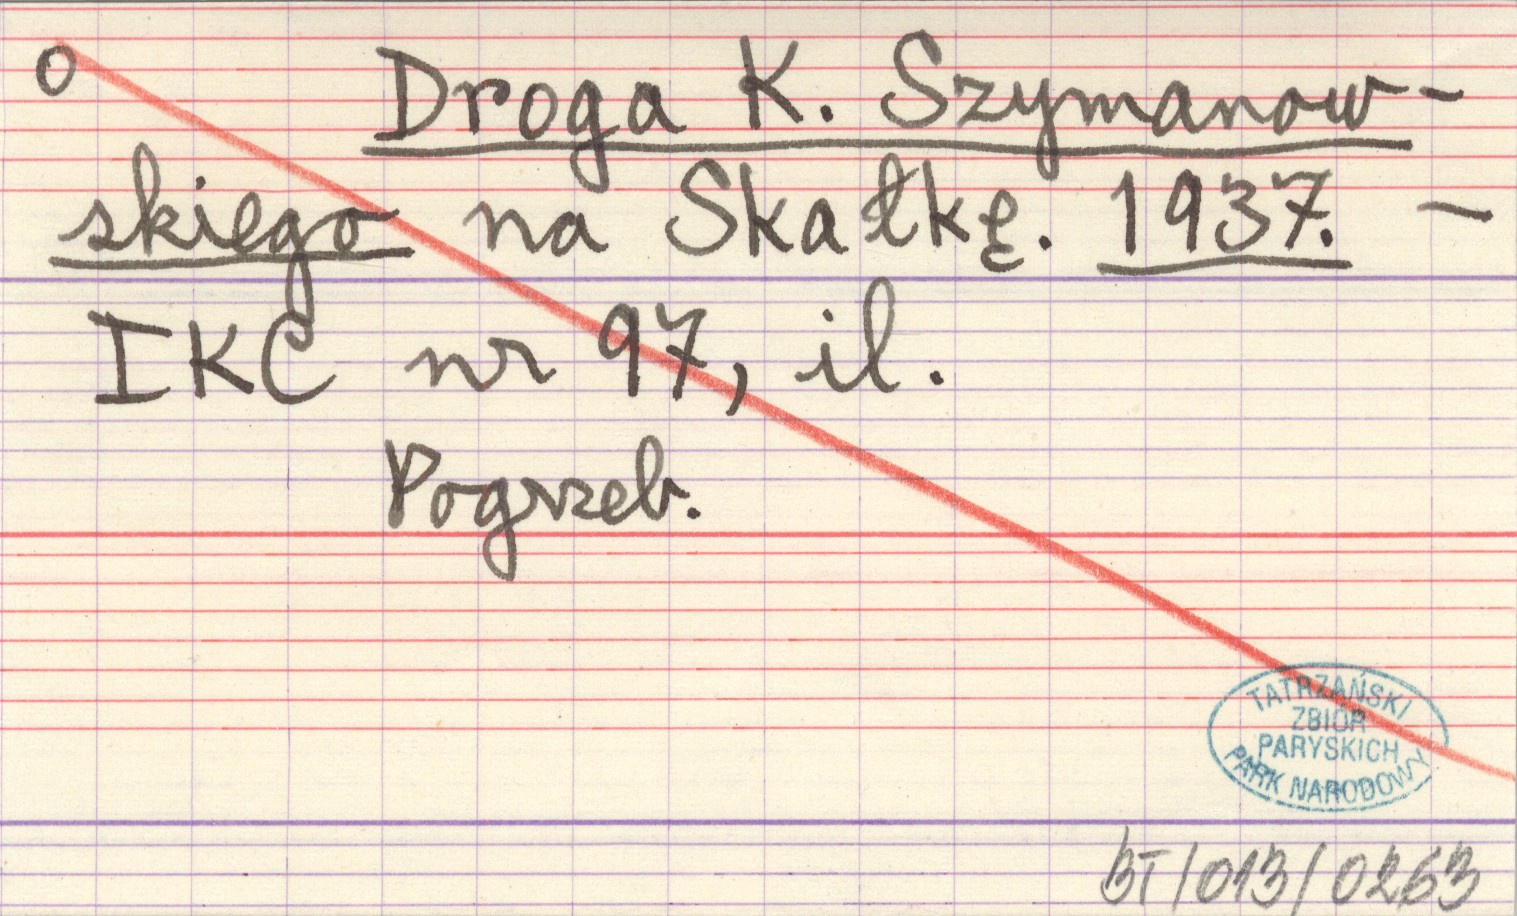 O Droga K. Szymanow-
skiego na Skałkę. 1937. -
IKC nr 97, il.
Pogrzeb.
TATRZAŃSKI
ZBIÓR
PARYSKICH
PARK NARODOWY
BT/013/0263